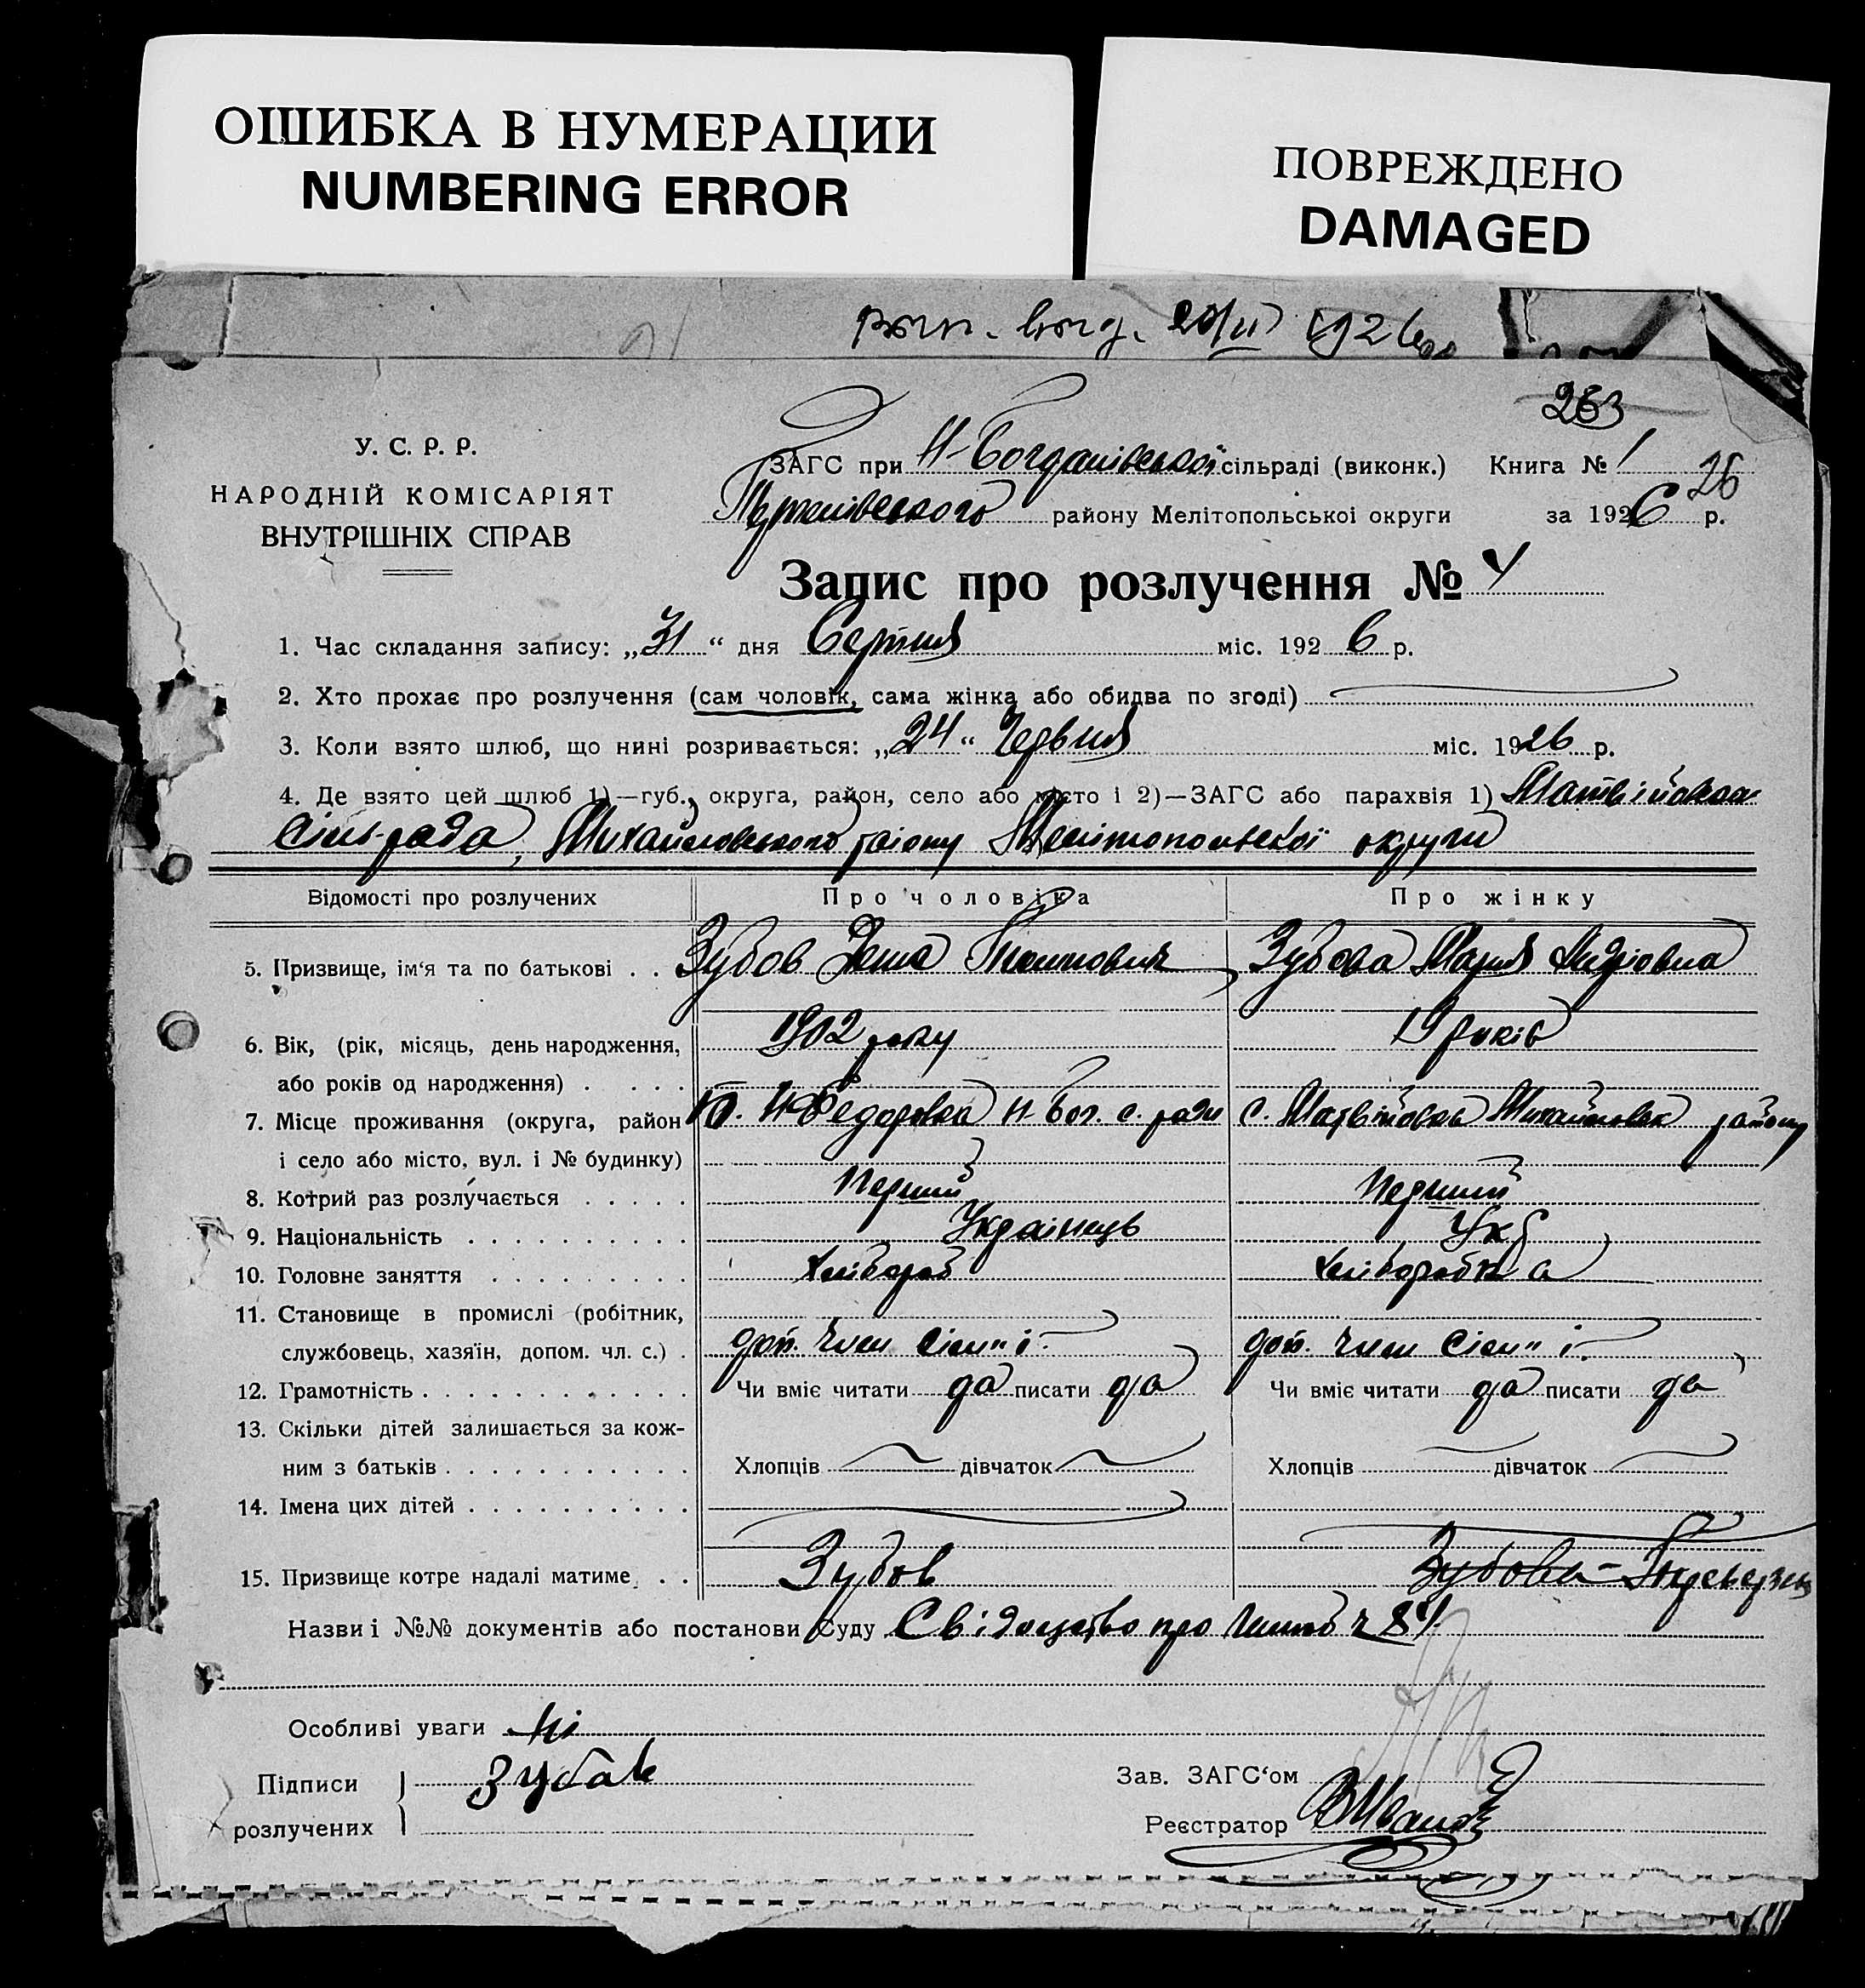 ОШИБКА В НУМЕРАЦИИ
NUMBERING ERROR
ПОВРЕЖДЕНО
DAMAGED
1926
263
У. С. Р. Р.
НАРОДНІЙ КОМІСАРІЯТ
ВНУТРІШНІХ СПРАВ
ЗАГС при Н-Богданівської сільраді (виконк.) Книга № 1
26
району Мелітопольської округи за 1926 р.
Запис про розлучення № 4
1. Час складання запису: „31“ дня Серпня міс. 1926 р.
2. Хто прохає про розлучення (сам чоловік, сама жінка або обидва по згоді)
3. Коли взято шлюб, що нині розривається: „24“ Червня міс. 1926 р.
4. Де взято цей шлюб 1)—губ., округа, район, село або місто і 2)—ЗАГС або парахвія 1) Матвіївська
сільрада, Михайловського району Мелітопольскої округи
Відомості про розлучених Про чоловіка Про жінку
5. Призвище, ім‘я та по батькові . . Зубов Зубова Мария
6. Вік, (рік, місяць, день народження, 1902 року 19 років
або років од народження) . . . .
7. Місце проживання (округа, район Н Федоровка Н Бог. с. ради с. Матвіївка Михайловск району
і село або місто, вул. і № будинку)
8. Котрий раз розлучається . . . . . Перший Перший
9. Національність . . . . . . . . . . Українець Укр
10. Головне заняття . . . . . . . . . хлібороб хліборобка
11. Становище в промислі (робітник,
службовець, хазяїн, допом. чл. с.) . доп. член сім"ї доп. член сім"ї
12. Грамотність . . . . . . . . . . . . Чи вміє читати да писати да Чи вміє читати да писати да
13. Скільки дітей залишається за кож-
ним з батьків . . . . . . . . . . . Хлопців дівчаток Хлопців дівчаток
14. Імена цих дітей . . . . . . . . . .
15. Призвище котре надалі матиме . . Зубов Зубова
Назви і №№ документів або постанови Суду Свідоцтво про шлюб ч 84
Особливі уваги Ні
Підписи Зубов
розлучених
Зав. ЗАГС‘ом
Реєстратор